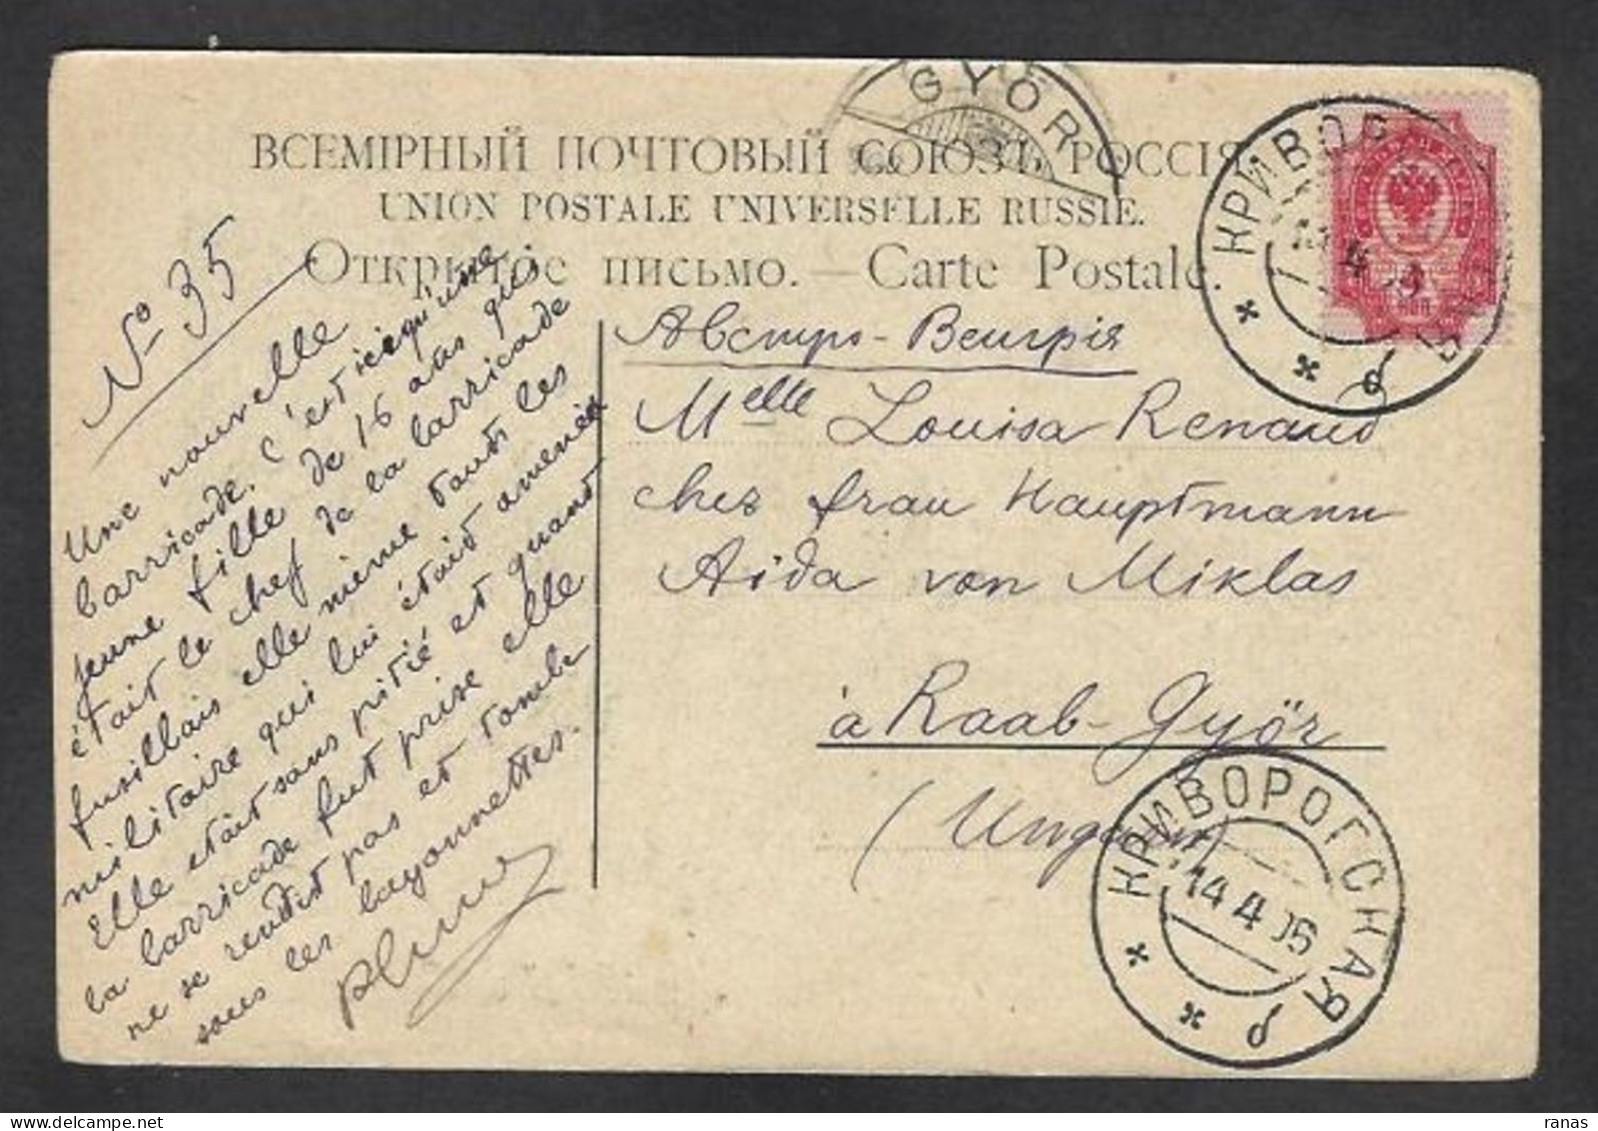 ВСЕМІРНЫЙ ПОЧТОВЫЙ СОЮЗЪ РОССІЯ
UNION POSTALE UNIVERSELLE RUSSIE.
Открытое письмо. — Carte Postale.
GYÖR
КРИВОР
4
No 35
Une nouvelle
barricade. C'est ici qu'une
jeune fille de 16 ans qui
était le chef de la barricade
fusillais elle même tout les
militaire qui lui étaid amenés
Elle etait sans pitié et quand
la barricade fut prise elle
ne se rendit pas et tomba
sous les bayonnettes.
Австро-Венгрія
Melle Louisa Renaud
chez frau Hauptmann
Aida von Miklas
à Raab-Györ
(Ungarn)
КРИВОРОГСКАЯ
14 4 06
ranas